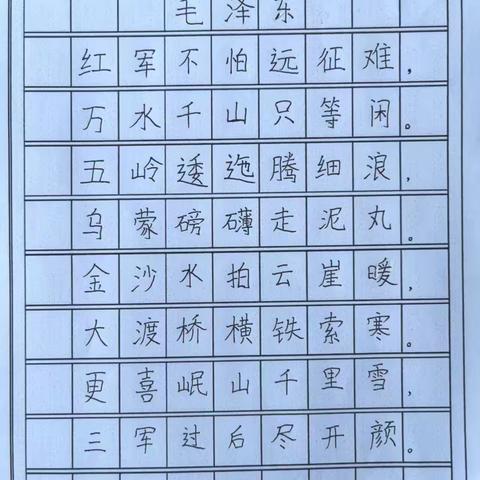 毛泽东
红军不怕远征难，
万水千山只等闲。
五岭逶迤腾细浪，
乌蒙磅礴走泥丸。
金沙水拍云崖暖，
大渡桥横铁索寒。
更喜岷山千里雪，
三军过后尽开颜。